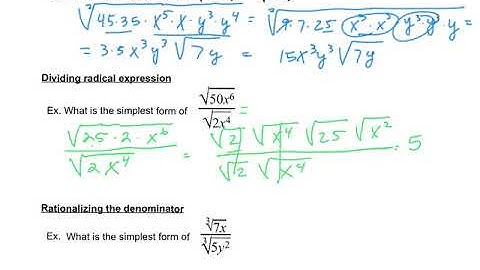 ²√45·35·x⁵·x·y³·y⁴ = ²√9·7·25 x³·x³·y³y³·y =
= 3·5x³y³√7y = 15x³y³√7y
Dividing radical expression
Ex. What is the simplest form of √50x⁶ / √2x⁴ =
√25·2·x⁶ / √2x⁴ = √2 √x⁴ √25 √x² / √2 √x⁴ = 5
Rationalizing the denominator
Ex. What is the simplest form of ∛7x / ∛5y²